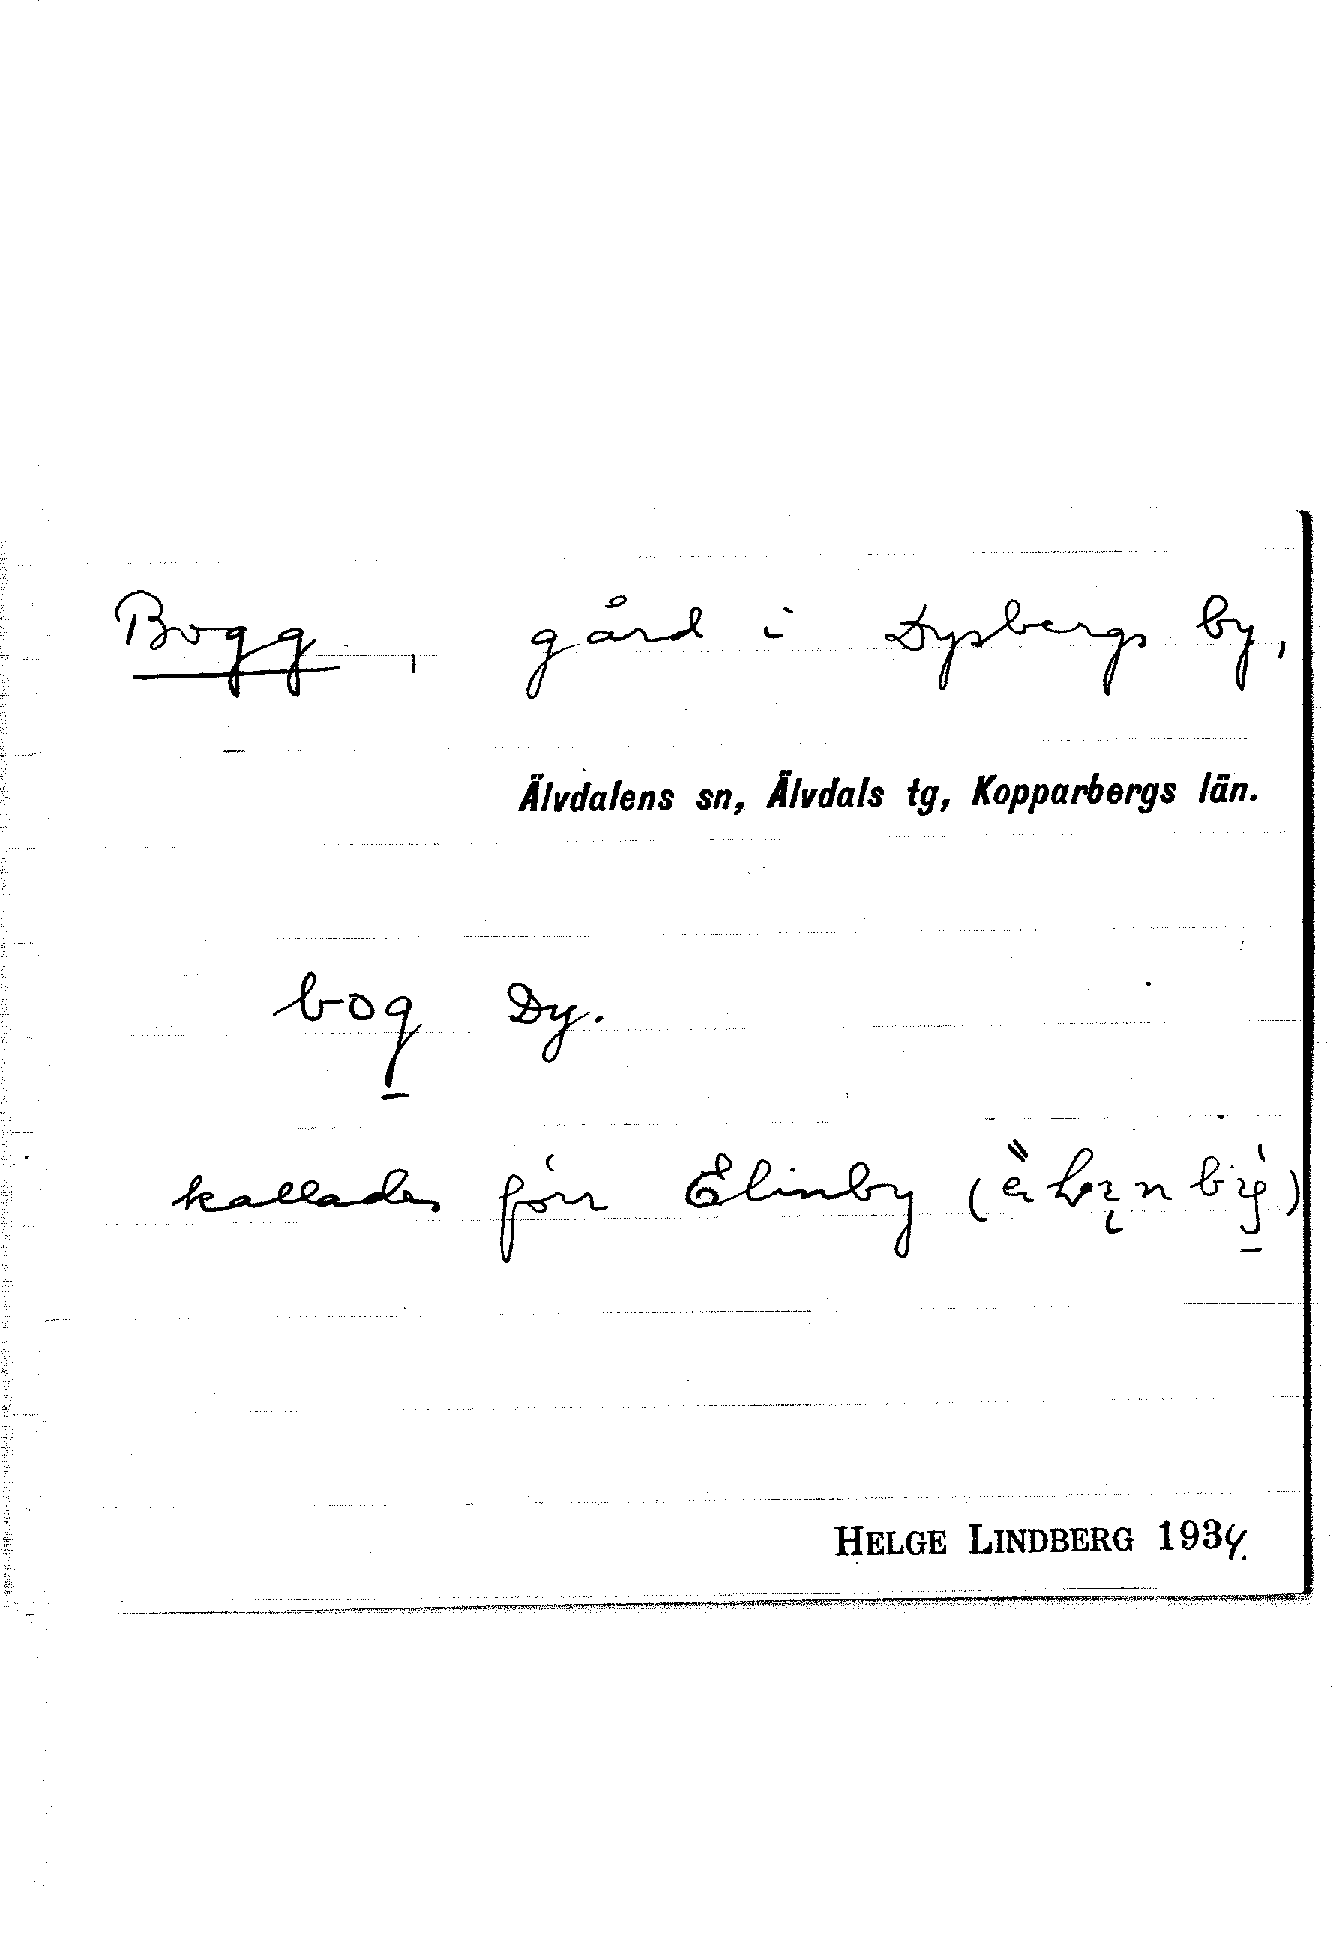 Bogg, gård i Dysbergs by,
Älvdalens sn, Älvdals tg, Kopparbergs län.
bog Dy.
kallades förr Elinby
HELGE LINDBERG 1934.